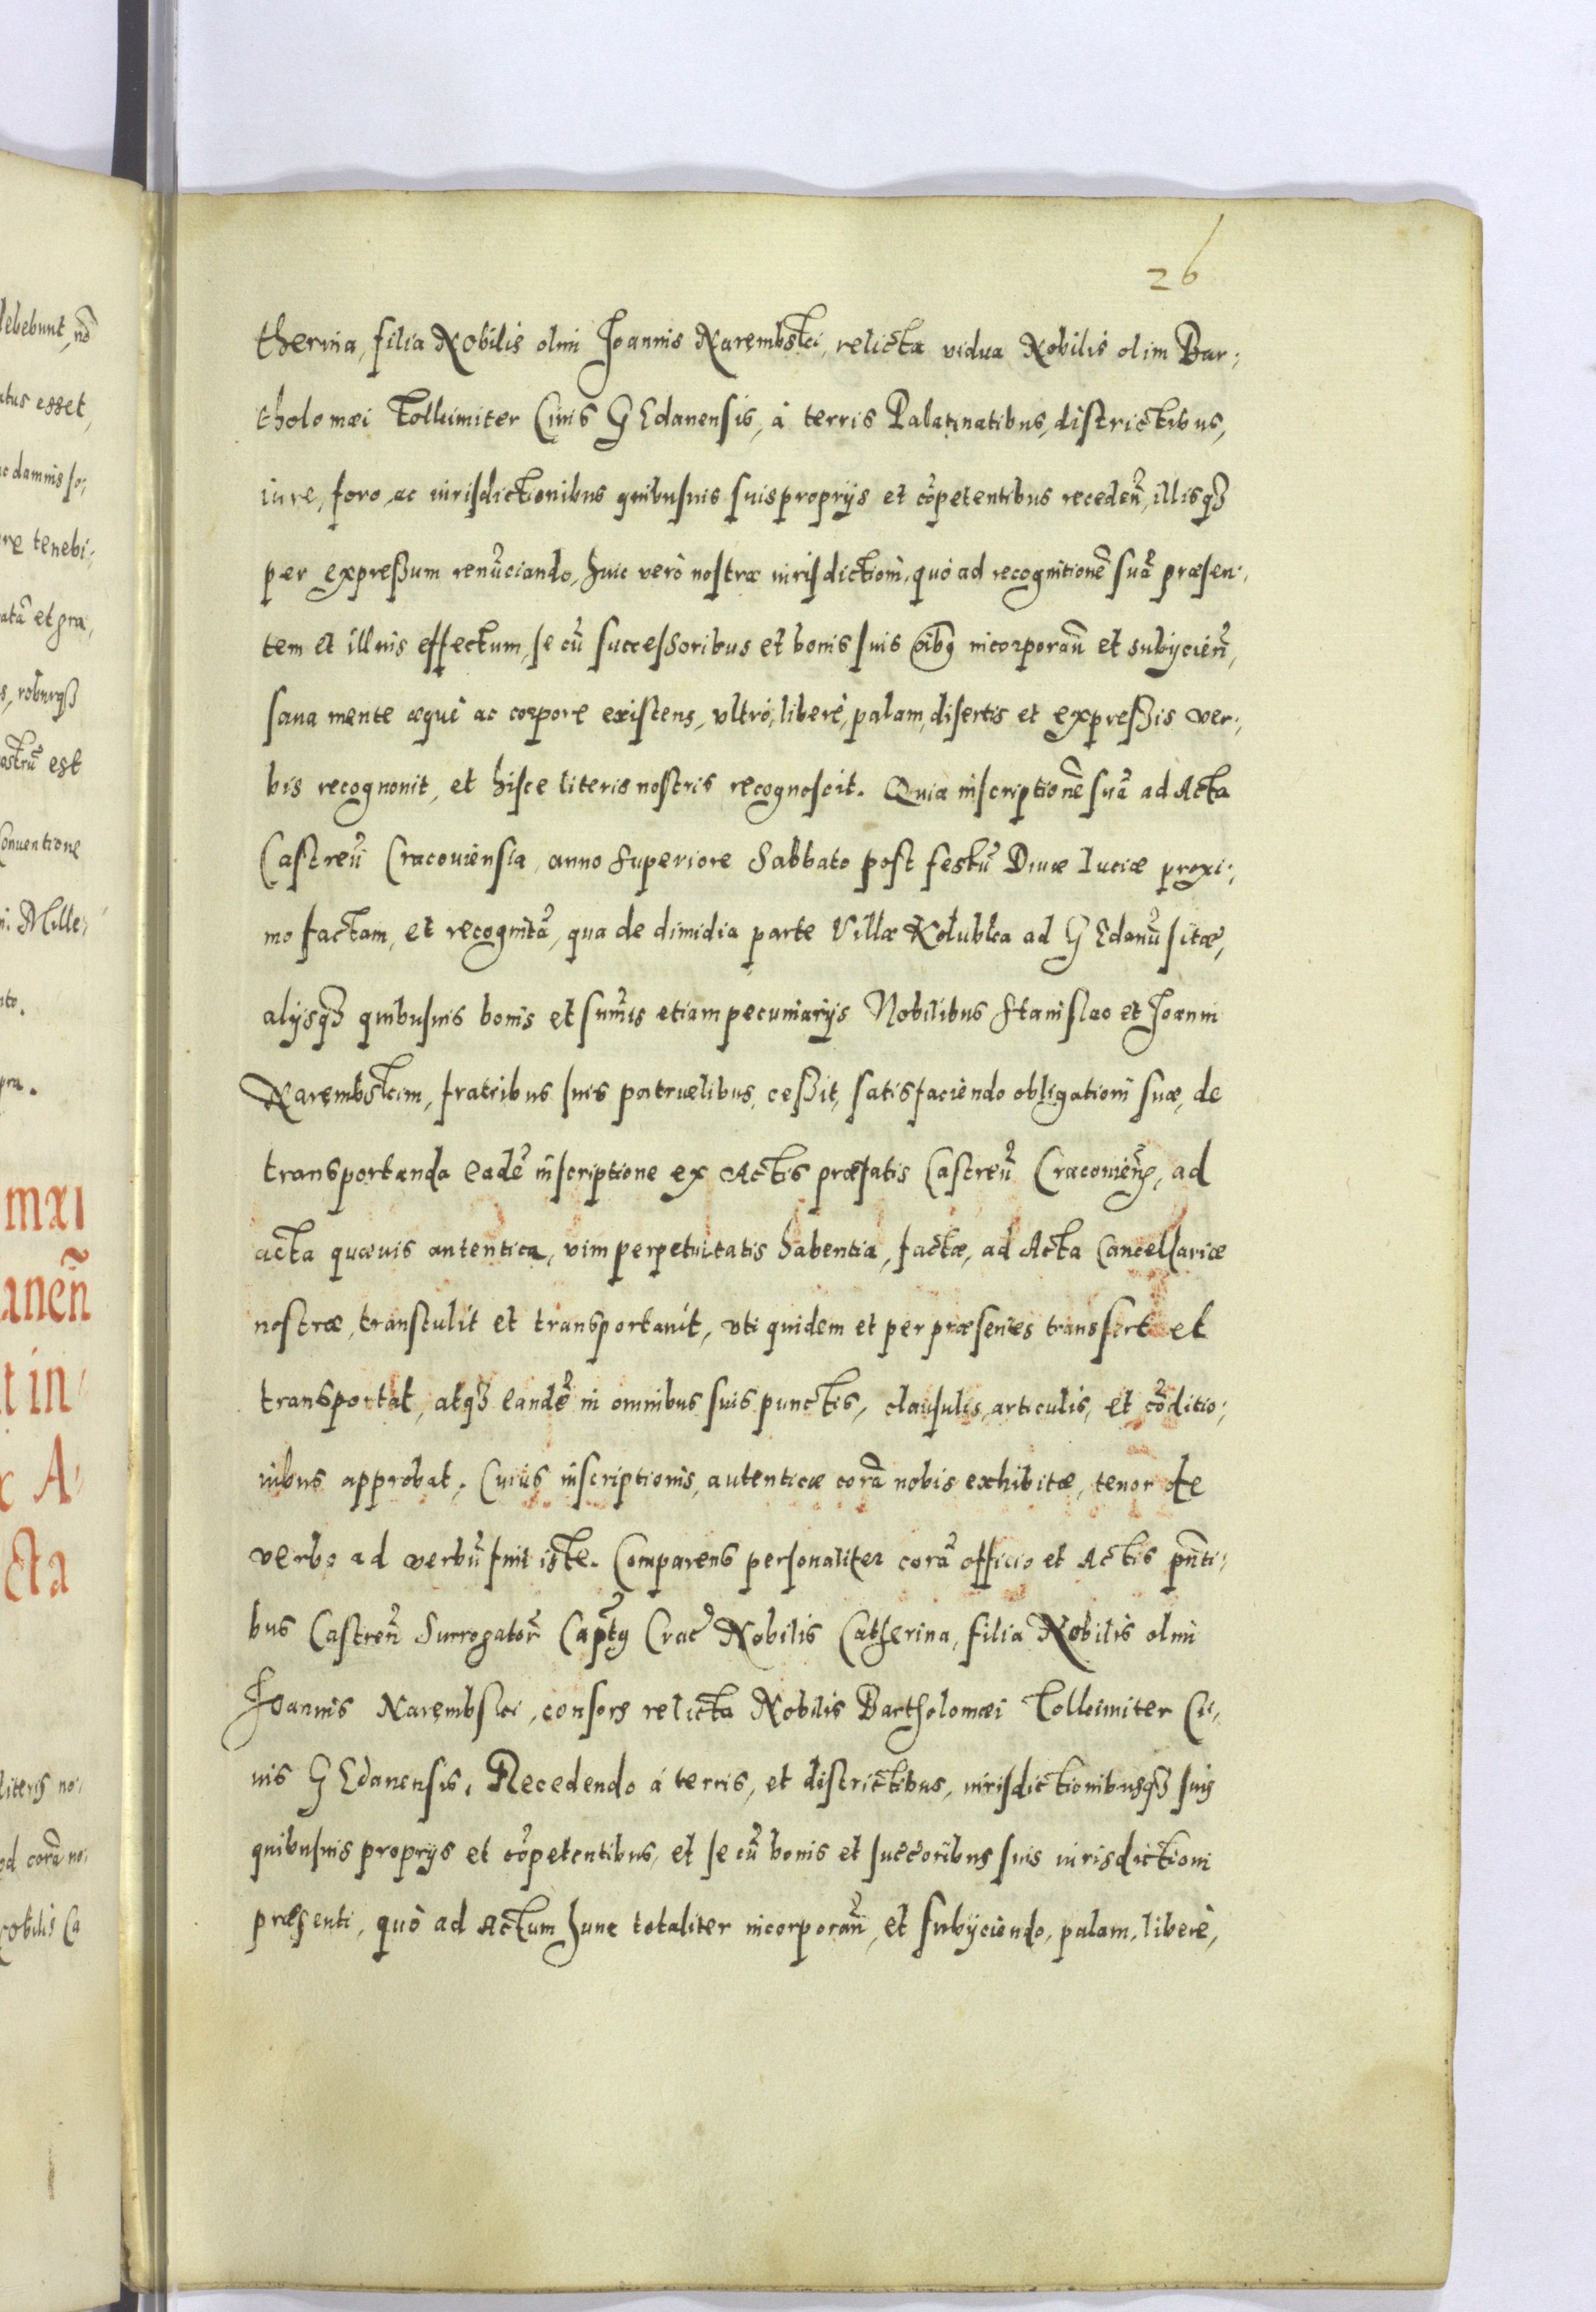 26
therina, filia Nobilis olim Joannis Narembski, relicta vidua Nobilis olim Bar:
tholomæi Tolkimiter Ciuis GEdanensis, à terris Palatinatibus, districtibus,
iure, foro, ac iurisdictionibus quibusuis suis proprijs et cõpetentibus recedeñ, illisqȝ
per expreßum renũciando, huic verò nostræ iurisdictioni, quò ad recognitionẽ suã præsen:
tem et illius effectum, se cũ successoribus et bonis suis oĩbꝯ incorporañ et subijcieñ,
sana mente æquè ac corpore existens, vltrò, liberè, palam, disertis et expreßis ver:
bis recognouit, et hisce literis nostris recognoscit. Quia inscriptionẽ suã ad Acta
Castreñ Cracouiensia, anno Superiore Sabbato post festũ Diuæ Luciæ proxi:
mo factam, et recognitã, qua de dimidia parte Villæ Kolubka ad GEdanũ sitæ,
alijsqȝ quibusuis bonis et sum̃is etiam pecuniarijs Nobilibus Stanislao et Joanni
Narembskim, fratribus suis patruelibus, ceßit, satisfaciendo obligationi suæ, de
transportanda eadẽ inscriptione ex Actis præfatis Castreñ Cracouieñ, ad
acta quæuis autentica, vim perpetuitatis habentia, factæ, ad Acta Cancellariæ
nostræ, transtulit et transportauit, vti quidem et per præsentes transfert et
transportat, atqȝ eandẽ in omnibus suis punctis, clausulis, articulis, et cõditio:
nibus approbat. Cuius inscriptionis, autenticæ corã nobis exhibitæ, tenor de
verbo ad verbũ fuit iste. Comparens personaliter corã officio et Actis pñti:
bus Castreñ Surrogator̃ Capt̃ꝯ Crac̃ Nobilis Catherina, filia Nobilis olim
Joannis Narembski, consors relicta Nobilis Bartholomæi Tolkimiter Ci:
uis GEdanensis. Recedendo á terris, et districtibus, iurisdictionibusqȝ suis
quibusuis proprijs et cõpetentibus, et se cũ bonis et succõribus suis iurisdictioni
præsenti, quò ad Actum hunc totaliter incorporañ, et subijciendo, palam, liberè,